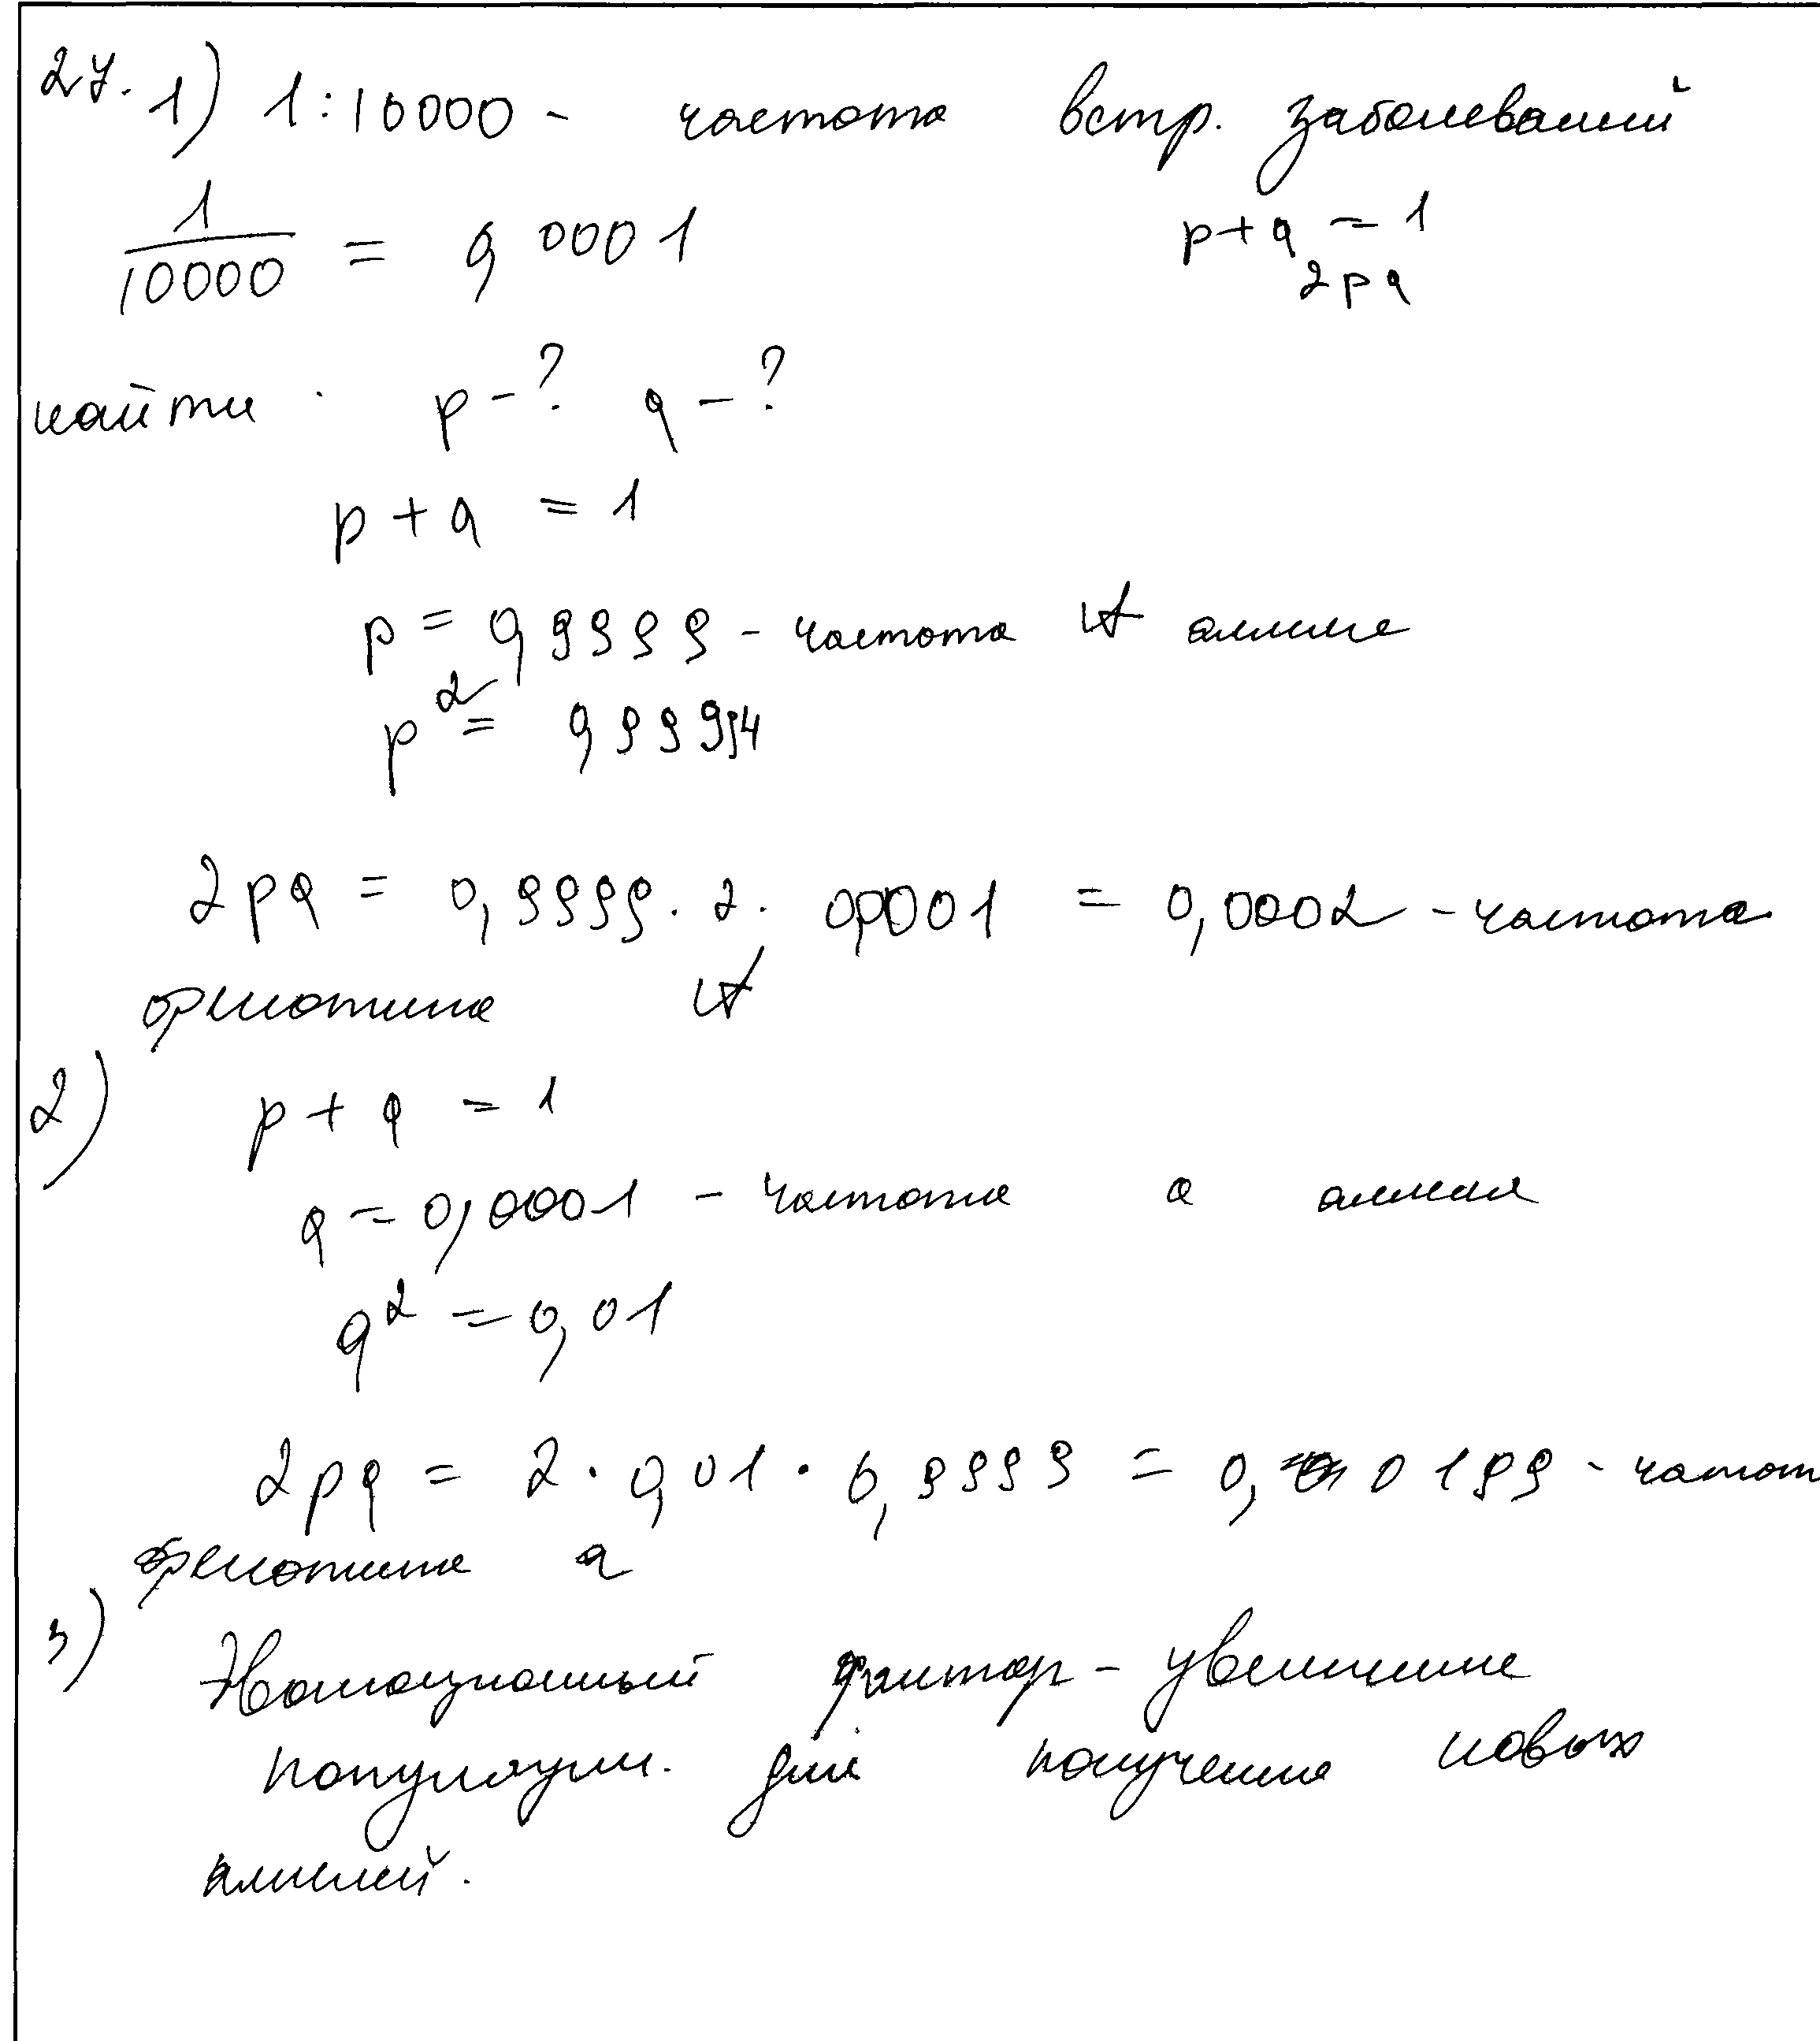 27. 1) 1:10000 - частота встр. заболеваний
1/10000 = 0,0001
p+q = 1
2pq
найти p - ? q - ?
p + q = 1
p = 0,9999 - частота A аллеле
p² = 0,99994
2pq = 0,9999 · 2 · 0,0001 = 0,0002 - частота
фенотипа A
2) p + q = 1
q = 0,0001 - частота a аллеля
q² = 0,01
2pq = 2 · 0,01 · 0,9999 = 0,0199 - частот
фенотипа a
3) Эволюционный фактор - увеличение
популяции. для получения новых
аллелей.